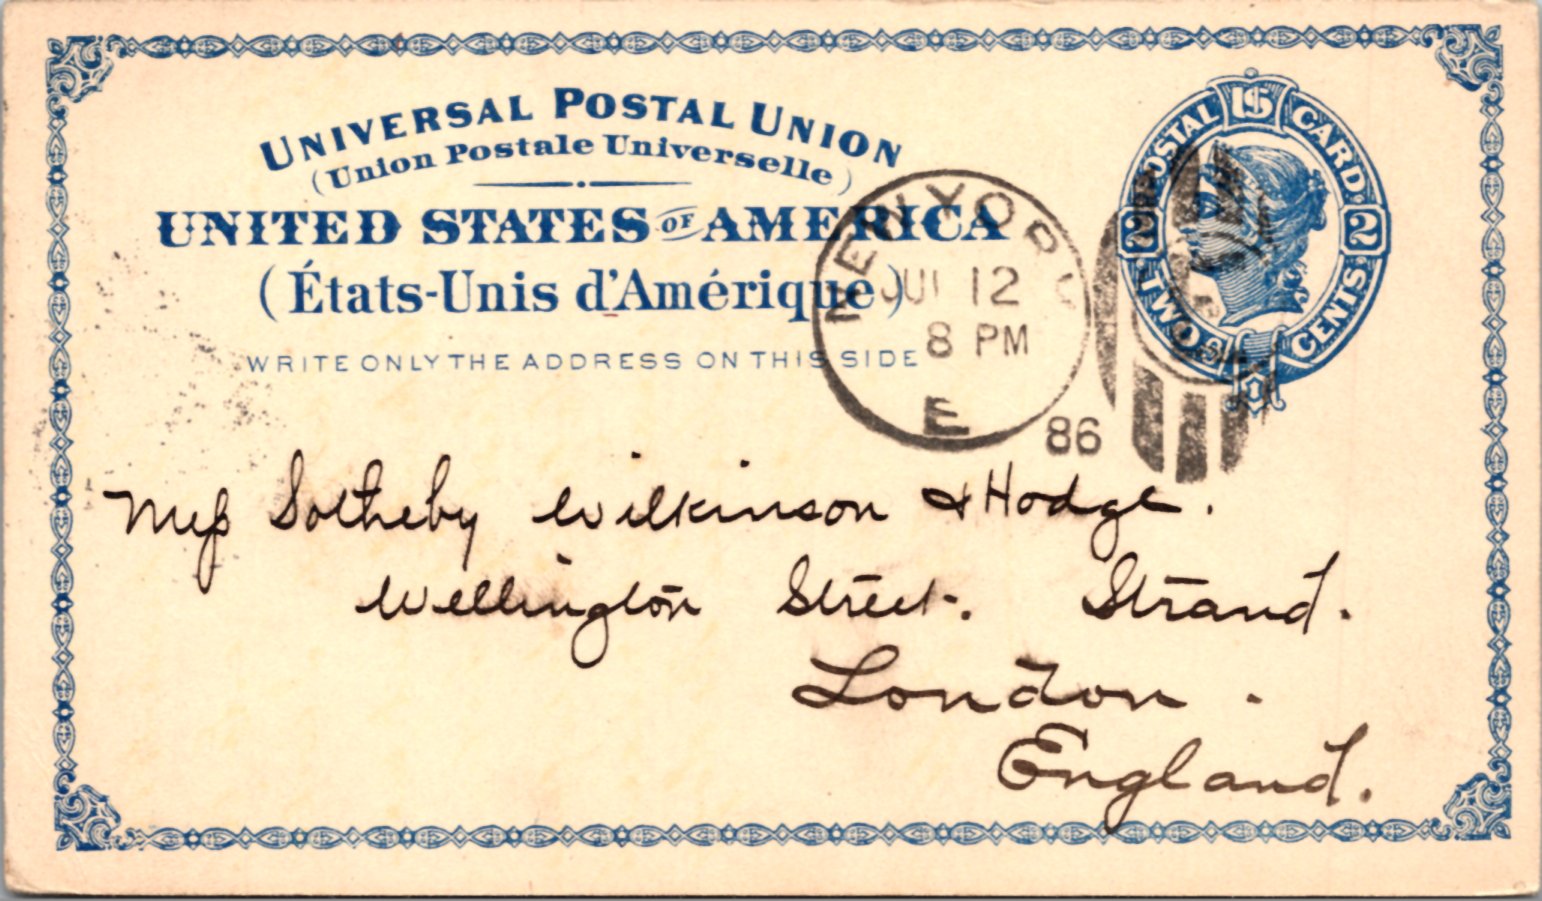 UNIVERSAL POSTAL UNION
(Union Postale Universelle)
UNITED STATES OF AMERICA
(États-Unis d'Amérique)
WRITE ONLY THE ADDRESS ON THIS SIDE
POSTAL CARD
2 2
TWO CENTS
NEW YORK
JUL 12
8 PM
E
86
Mess Sotheby Wilkinson & Hodge.
Wellington Street. Strand.
London.
England.